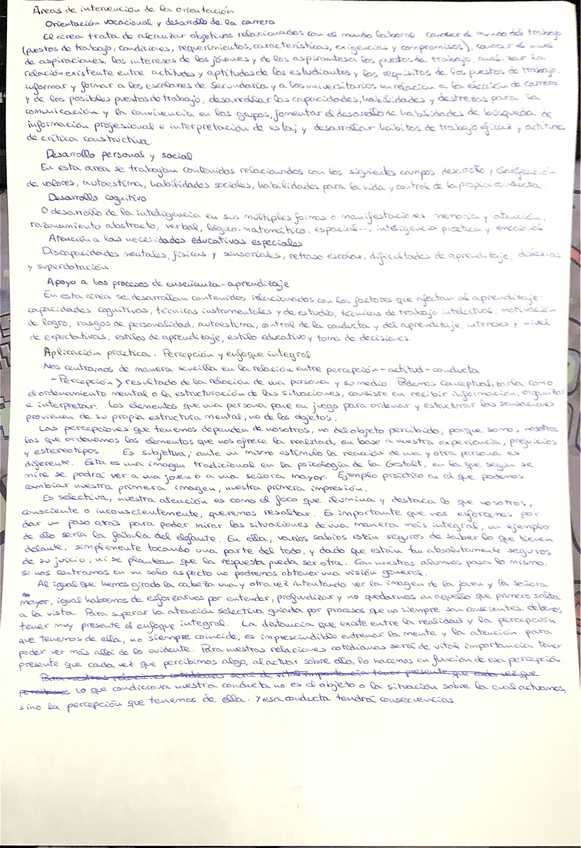 Áreas de intervención de la orientación
Orientación vocacional y desarrollo de la carrera
El área trata de alcanzar objetivos relacionados con el mundo laboral conocer el mundo del trabajo
(puestos de trabajo, condiciones, requerimientos, características, exigencias y compromisos), conocer el nivel
de aspiraciones, los intereses de los jóvenes y de los aspirantes a los puestos de trabajo, analizar la
relación existente entre actitudes y aptitudes de los estudiantes y los requisitos de los puestos de trabajo,
informar y formar a los escolares de secundaria y a los universitarios en relación a la elección de carrera
y de los posibles puestos de trabajo, desarrollar las capacidades, habilidades y destrezas para la
comunicación y la convivencia en los grupos, fomentar el desarrollo de habilidades de búsqueda de
información profesional e interpretación de esta; y desarrollar hábitos de trabajo eficaz y actitudes
de crítica constructiva
Desarrollo personal y social
En esta área se trabajan contenidos relacionados con los siguientes campos desarrollo y
de valores, autoestima, habilidades sociales, habilidades para la vida y control de la propia conducta
Desarrollo cognitivo
O desarrollo de la inteligencia en sus múltiples formas o manifestaciones memoria y atención,
razonamiento abstracto, verbal, lógico-matemático, espacial..., inteligencia práctica y emocional
Atención a las necesidades educativas especiales
Discapacidades mentales, físicas y sensoriales, retraso escolar, dificultades de aprendizaje,
y superdotación
Apoyo a los procesos de enseñanza-aprendizaje
En esta área se desarrollan contenidos relacionados con los factores que afectan al aprendizaje
capacidades cognitivas, técnicas instrumentales y de estudio, técnicas de trabajo intelectual, motivación
de logro, rasgos de personalidad, autoestima, control de la conducta y del aprendizaje, intereses y nivel
de expectativas, estilos de aprendizaje, estilo educativo y toma de decisiones.
Aplicación práctica. Percepción y enfoque integral
Nos centramos de manera sencilla en la relación entre percepción-actitud-conducta
- Percepción > resultado de la relación de una persona y su medio Podemos conceptualizarla como
el ordenamiento mental o la estructuración de las situaciones, consiste en recibir información, organizar
e interpretar. Los elementos que una persona pone en juego para ordenar y estructurar las situaciones
provienen de su propia estructura mental, no de los objetos.
Las percepciones que tenemos dependen de nosotros, no del objeto percibido, porque somos nosotros
los que ordenamos los elementos que nos ofrece la realidad, en base a nuestra experiencia, prejuicios
y estereotipos. Es subjetiva, ante un mismo estímulo la reacción de una y otra persona es
diferente. Esta es una imagen tradicional en la psicología de la Gestalt, en la que según se
mire se podrá ver a una joven o a una señora mayor. Ejemplo práctico en el que podemos
cambiar nuestra primera imagen, nuestra primera impresión.
Es selectiva, nuestra atención es como el foco que ilumina y destaca lo que nosotros,
consciente o inconscientemente, queremos resaltar. Es importante que nos esforcemos por
dar un paso atrás para poder mirar las situaciones de una manera más integral, un ejemplo
de ello sería la fábula del elefante. En ella, varios sabios están seguros de saber lo que tienen
delante, simplemente tocando una parte del todo, y dado que están tan absolutamente seguros
de su juicio, ni se plantean que la respuesta pueda ser otra. Con nuestros alumnos pasa lo mismo,
si nos centramos en un solo aspecto no podremos obtener una visión general.
Al igual que hemos girado la cabeza una y otra vez intentando ver la imagen de la joven y la señora
mayor, igual habremos de esforzarnos por entender, profundizar y no quedarnos en aquello que primero salta
a la vista. Para superar la atención selectiva guiada por procesos que no siempre son conscientes debemos
tener muy presente el enfoque integral. La distancia que existe entre la realidad y la percepción
que tenemos de ella, no siempre coincide, es imprescindible entrenar la mente y la atención para
poder ver más allá de lo evidente. Para nuestras relaciones cotidianas será de vital importancia tener
presente que cada vez que percibimos algo, al actuar sobre ella, lo hacemos en función de esa percepción.
Para nuestras relaciones cotidianas será de vital importancia tener presente que cada vez que
percibimos lo que condiciona nuestra conducta no es el objeto o la situación sobre la cual actuamos,
sino la percepción que tenemos de ella. Y esa conducta tendrá consecuencias.